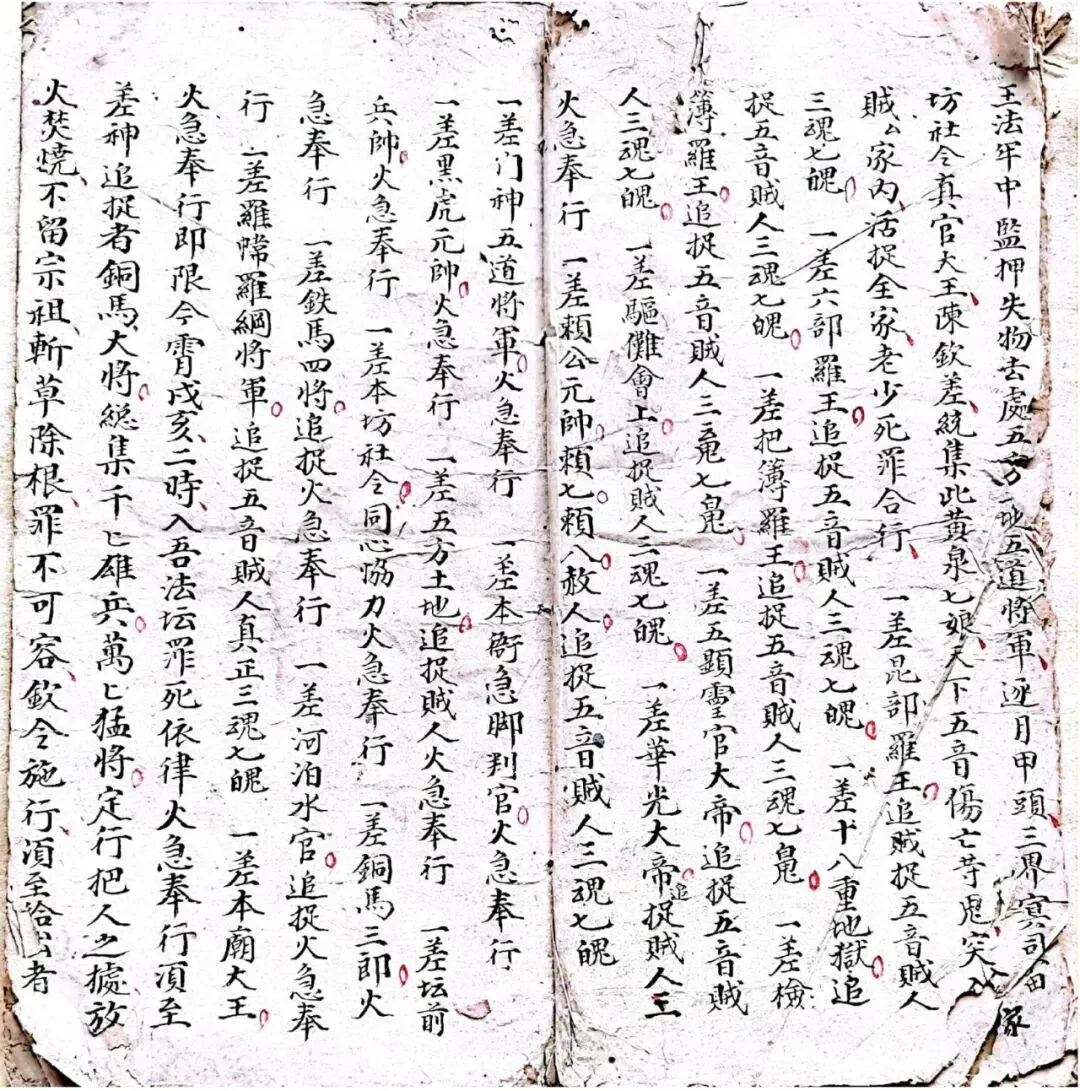 王法牢中監押失物去處五方地五道将軍逐月甲頭三界冥司
坊社令真官大王陳欽差統集此黃泉七娘天下五音傷亡等鬼突入
賊人家内活捉全家老少死罪合行、一差昆部羅王追賊捉五音賊人
三魂七魄 一差六部羅王追捉五音賊人三魂七魄 一差十八重地獄追
捉五音賊人三魂七魄 一差把簿羅王追捉五音賊人三魂七魄 一差檢
簿羅王追捉五音賊人三魂七魄 一差五顕靈官大帝追捉五音賊
人三魂七魄 一差驅儺會上追捉賊人三魂七魄 一差華光大帝追捉賊人三
火急奉行 一差賴公元帥賴七賴八赦人追捉五音賊人三魂七魄
一差门神五道将軍火急奉行 一差本衙急脚判官火急奉行
一差黑虎元帥火急奉行 一差五方土地追捉賊人火急奉行 一差坛前
兵帥火急奉行 一差本坊社令同心恊力火急奉行 一差銅馬三郎火
急奉行 一差鉄馬四将追捉火急奉行 一差河泊水官追捉火急奉
行 一差羅幃羅綱将軍追捉五音賊人真正三魂七魄 一差本廟大王
火急奉行即限今霄戌亥二時入吾法坛罪死依律火急奉行湏至
差神追捉者銅馬大将総集千匕雄兵萬匕猛将定行把人之據放
火焚燒不留宗祖斬草除根罪不可容欽令施行湏至給出者